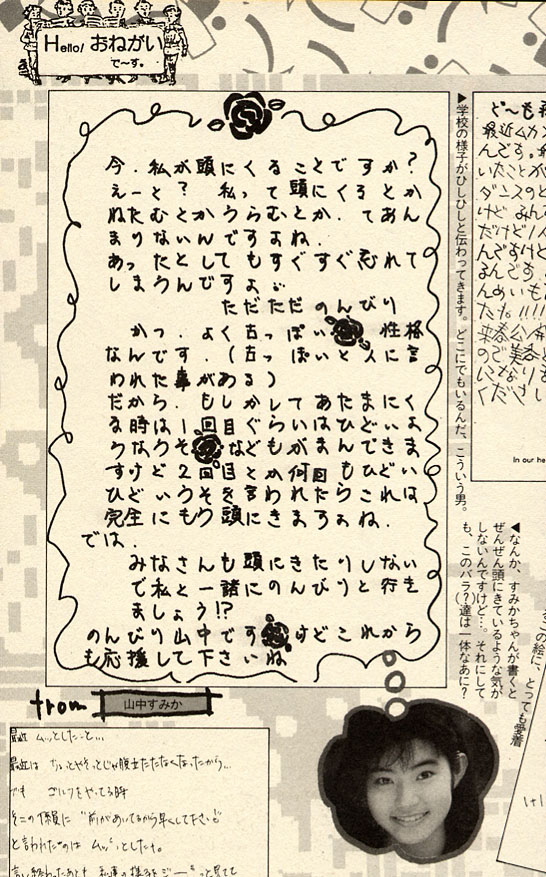 Hello! おねがい
で〜す。
今.私が頭にくることですか?
えーと? 私って頭にくるとか
ねたむとかうらむとか.てあん
まりないんですよね.
あったとしてもすぐすぐ忘れて
しまうんですよ
ただただのんびり
かつ.よく古っぽい 性格
なんです.(古っぽいと人に言
われた事がある)
だから.もしかしてあたまにく
る時は1回目ぐらいはひどいよ
うなうそ などもがまんできま
すけど2回目とか何回もひどい
ひどいうそを言われたらこれは
完全にもう頭にきますよね.
では.
みなさんも頭にきたりしない
で私と一諸にのんびりと行き
ましょう!?
のんびり山中です けどこれから
も応援して下さいね
from 山中すみか
▶学校の様子がひしひしと伝わってきます。どこにでもいるんだ、こういう男。
◀なんか、すみかちゃんが書くと
ぜんぜん頭にきているような気が
しないんですけど…。それにして
も、このバラ(?)達は一体なあに?
この絵に、とっても愛着
ど〜も
最近ムカン
んです。
いたことが
ダンスのと
けど みん
だけど1人
んですけど
るんです。
んめいも
た。!!!!
来春公
のご美
になり
ください
In our he
最近 ムッとしたこと…
最近は ちょっとやそっとじゃ腹立たなくなったから…
でも ゴルフをやってる時
そこの係員に "前があいてるから早くして下さい"
と言われたのは ムッ としました。